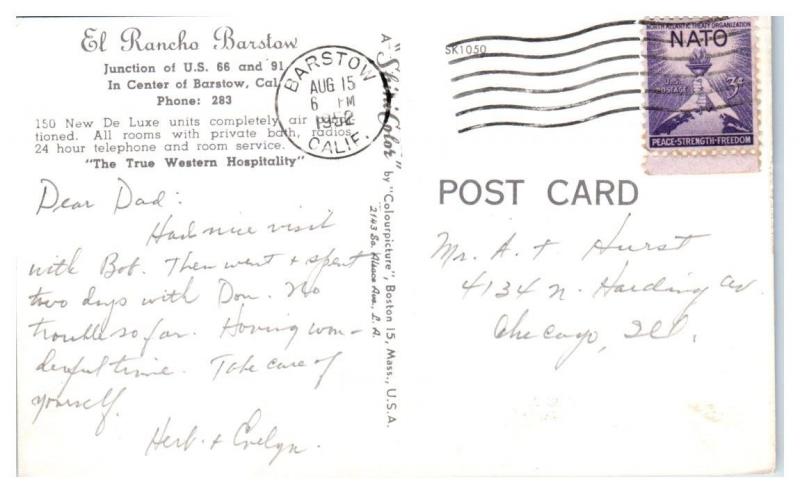 El Rancho Barstow
Junction of U.S. 66 and 91
In Center of Barstow, Cal.
Phone: 283
150 New De Luxe units completely air
tioned. All rooms with private bath, radios,
24 hour telephone and room service.
"The True Western Hospitality"
Dear Dad:
Had nice visit
with Bob. Then went & spent
two days with Don. No
trouble so far. Having won-
derful time. Take care of
yourself.
Herb & Evelyn.
BARSTOW
AUG 15
6 PM
1952
CALIF.
A "Shini-Color"
by "Colourpicture", Boston 15, Mass., U.S.A.
2143 So. Alsace Ave., L. A.
SK1050
NORTH ATLANTIC TREATY ORGANIZATION
NATO
U.S. POSTAGE
3¢
PEACE-STRENGTH-FREEDOM
POST CARD
Mr. A. F. Hurst
4134 N. Harding Av.
Chicago, Ill.